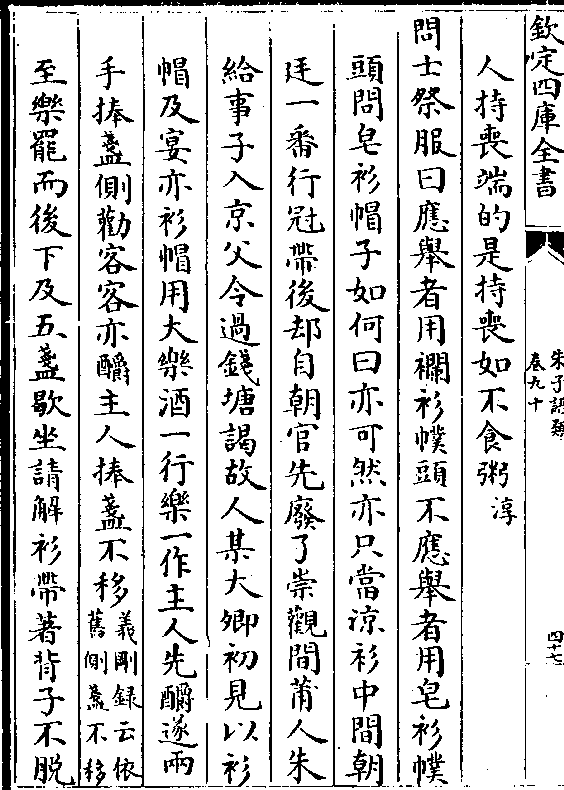 欽定四庫全書
朱子語類
卷九十
四十七
人持喪端的是持喪如不食粥淳
問士祭服曰應舉者用襴衫幞頭不應舉者用皂衫幞
頭問皂衫帽子如何曰亦可然亦只當凉衫中間朝
廷一番行冠帶後却自朝官先廢了崇觀間莆人朱
給事子入京父令過錢塘謁故人某大卿初見以衫
帽及宴亦衫帽用大樂酒一行樂一作主人先釂遂兩
手捧盞側勸客客亦釂主人捧盞不移義剛録云依
舊側盞不移
至樂罷而後下及五盞歇坐請解衫帶著背子不脱